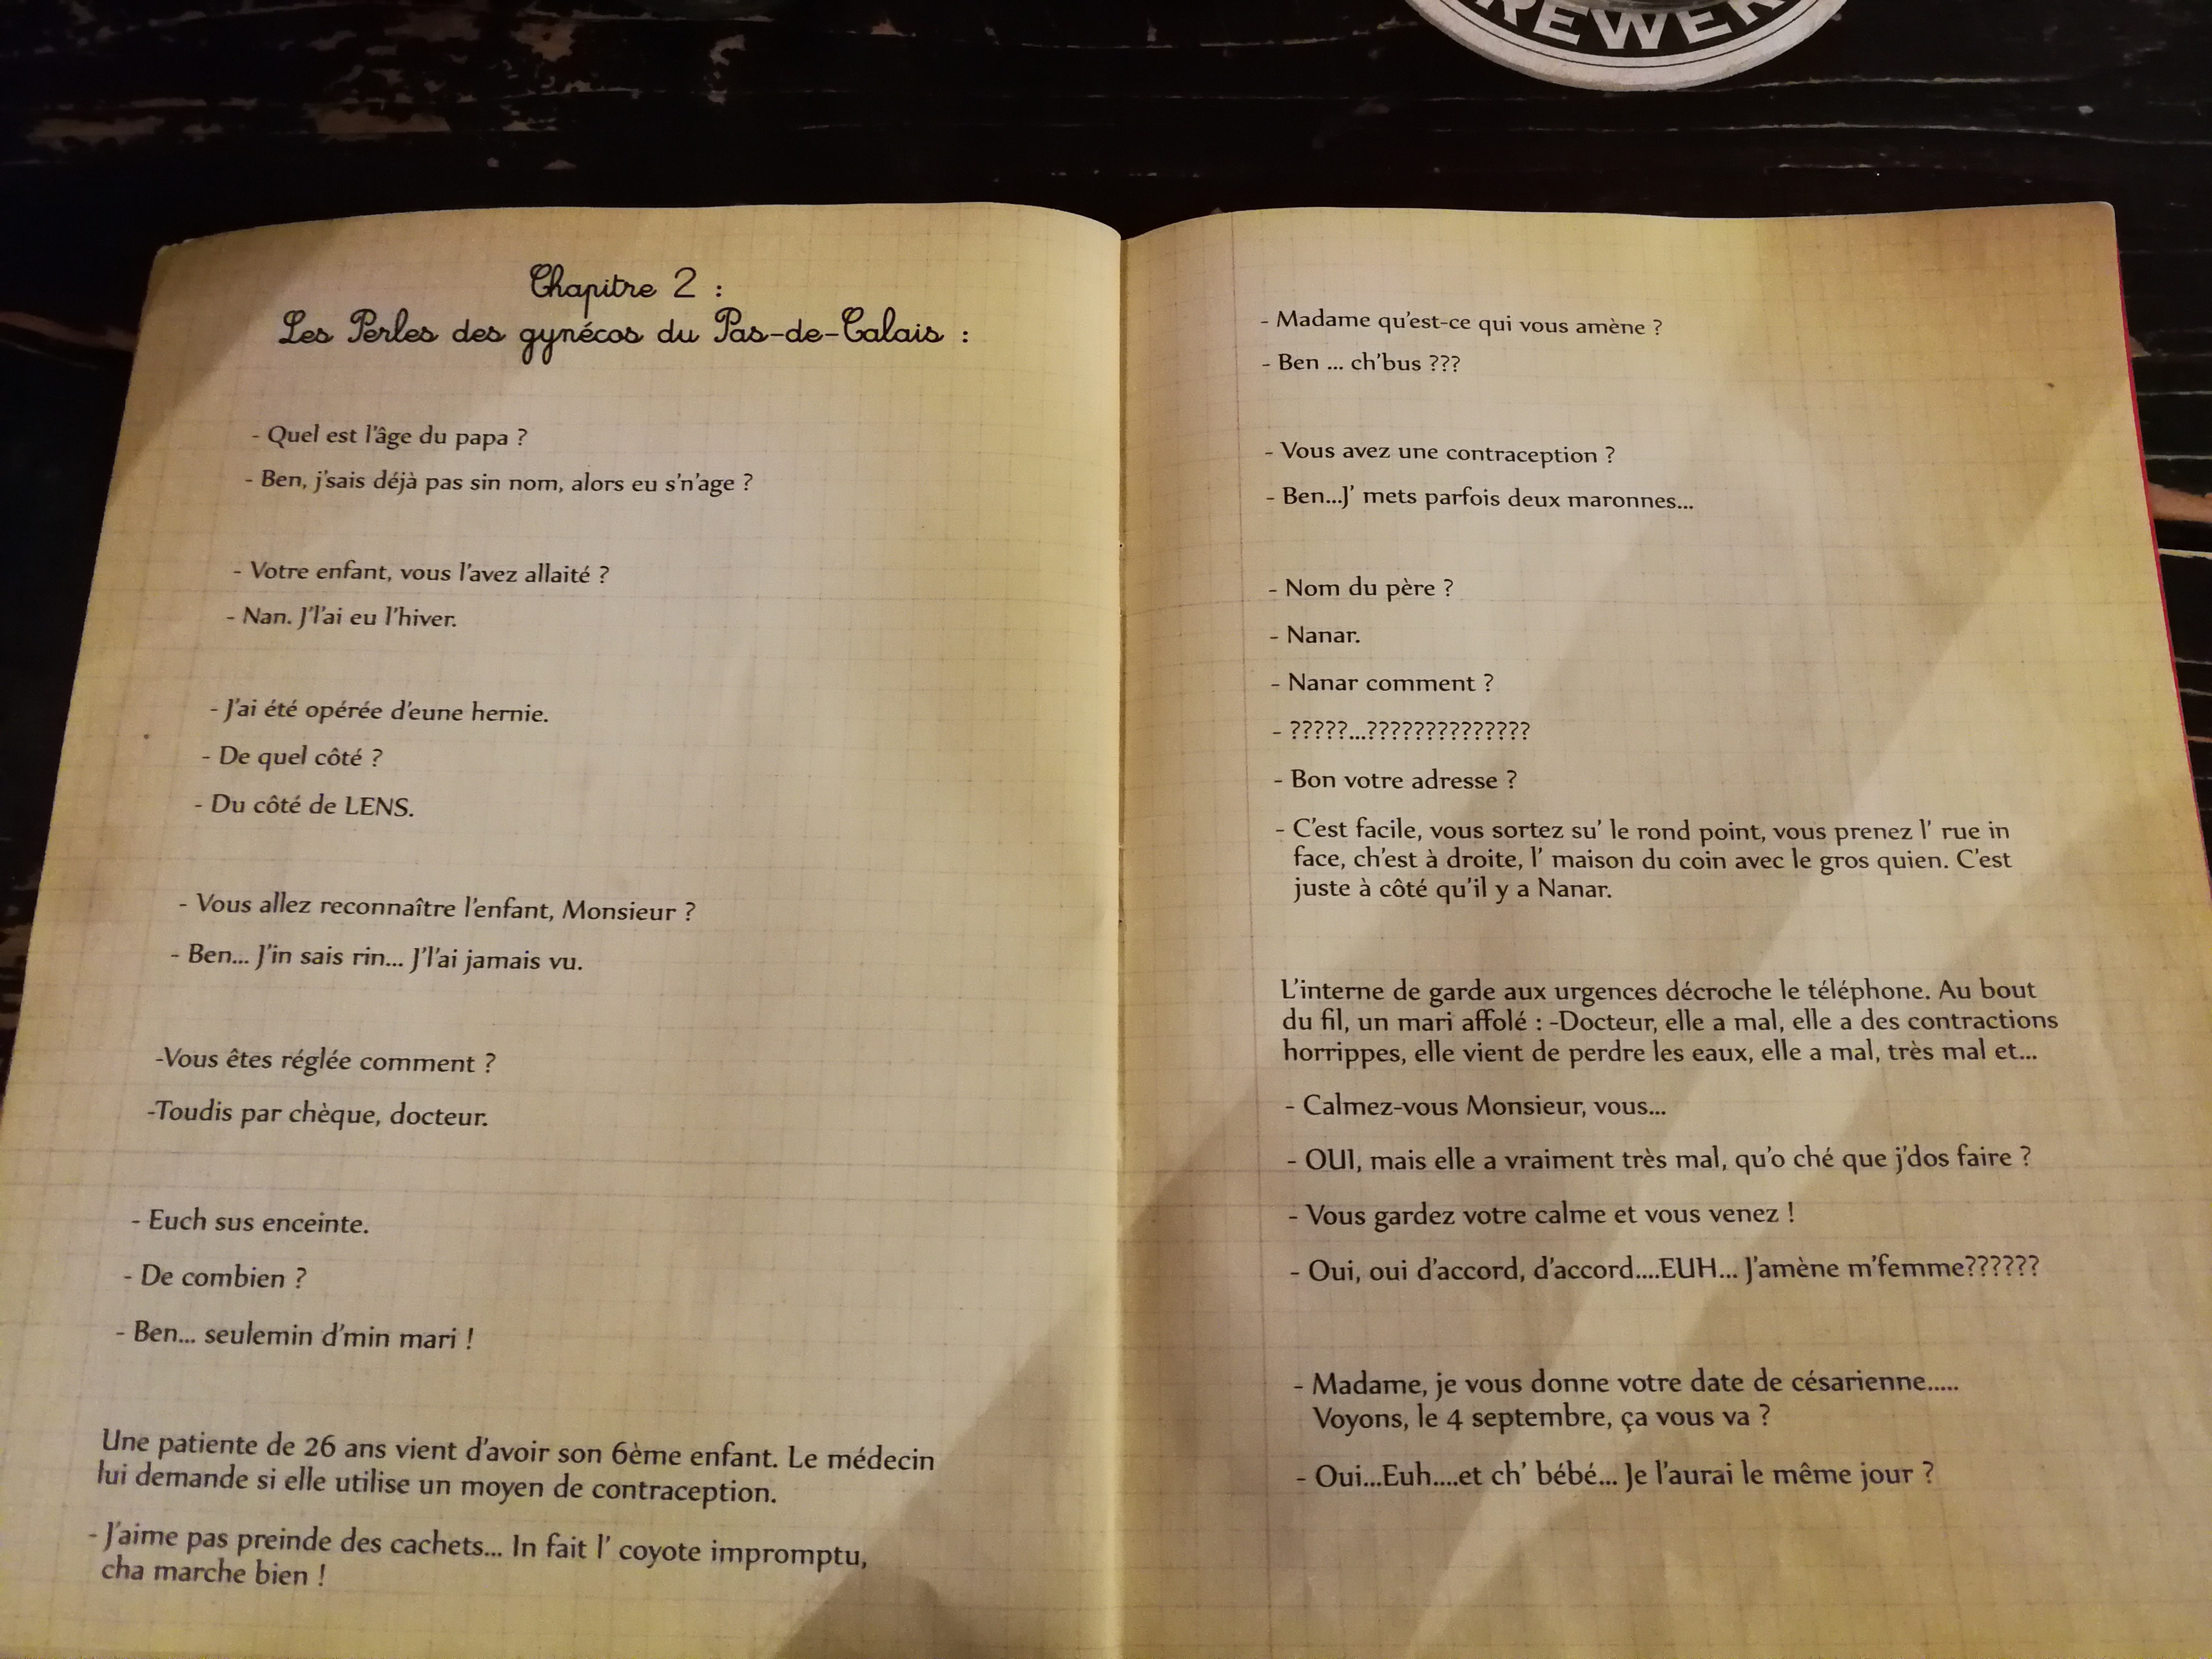 REWER
Chapitre 2 :
Les Perles des gynécos du Pas-de-Calais :
- Quel est l'âge du papa ?
- Ben, j'sais déjà pas sin nom, alors eu s'n'age ?
- Votre enfant, vous l'avez allaité ?
- Nan. J'l'ai eu l'hiver.
- J'ai été opérée d'eune hernie.
- De quel côté ?
- Du côté de LENS.
- Vous allez reconnaître l'enfant, Monsieur ?
- Ben... J'in sais rin... J'l'ai jamais vu.
-Vous êtes réglée comment ?
-Toudis par chèque, docteur.
- Euch sus enceinte.
- De combien ?
- Ben... seulemin d'min mari !
Une patiente de 26 ans vient d'avoir son 6ème enfant. Le médecin
lui demande si elle utilise un moyen de contraception.
- J'aime pas preinde des cachets... In fait l' coyote impromptu,
cha marche bien !
- Madame qu'est-ce qui vous amène ?
- Ben ... ch'bus ???
- Vous avez une contraception ?
- Ben...J' mets parfois deux maronnes...
- Nom du père ?
- Nanar.
- Nanar comment ?
- ?????...??????????????
- Bon votre adresse ?
- C'est facile, vous sortez su' le rond point, vous prenez l' rue in
face, ch'est à droite, l' maison du coin avec le gros quien. C'est
juste à côté qu'il y a Nanar.
L'interne de garde aux urgences décroche le téléphone. Au bout
du fil, un mari affolé : -Docteur, elle a mal, elle a des contractions
horrippes, elle vient de perdre les eaux, elle a mal, très mal et...
- Calmez-vous Monsieur, vous...
- OUI, mais elle a vraiment très mal, qu'o ché que j'dos faire ?
- Vous gardez votre calme et vous venez !
- Oui, oui d'accord, d'accord....EUH... J'amène m'femme??????
- Madame, je vous donne votre date de césarienne.....
Voyons, le 4 septembre, ça vous va ?
- Oui...Euh....et ch' bébé... Je l'aurai le même jour ?